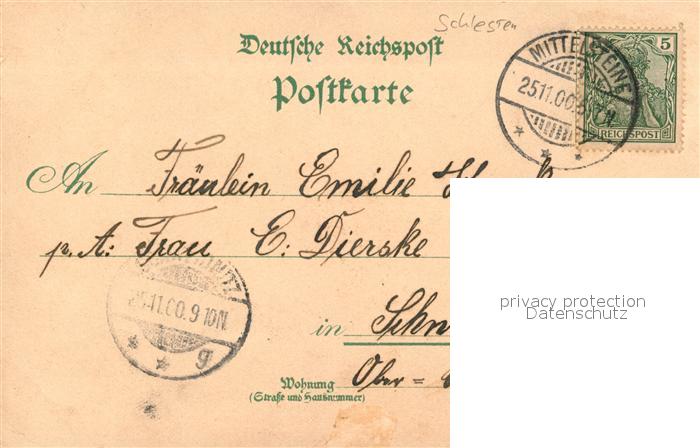 Schlesien
Deutsche Reichspost
Postkarte
5
REICHSPOST
MITTELSTEINE
25.11.00.
An Fräulein Emilie
p. A: Frau E: Dierske
25.11.00.9 10N.
g
in Schn
Wohnung Ober =
(Straße und Hausnummer)
privacy protection
Datenschutz